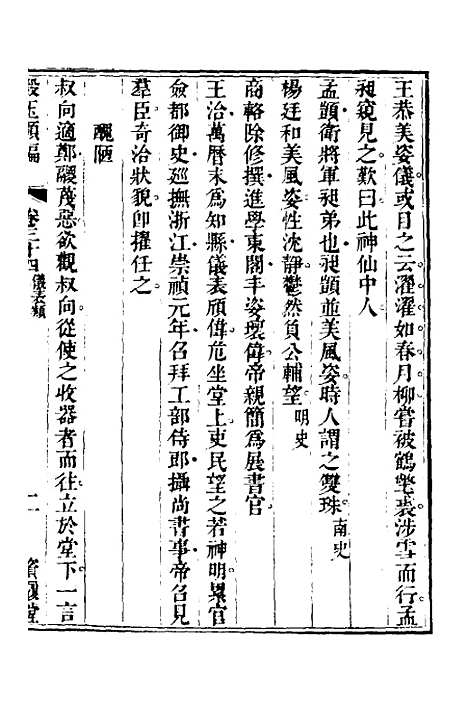 王恭美姿儀或目之云濯濯如春月柳嘗被鶴氅裘涉雪而行孟
昶窺見之歎曰此神仙中人
孟顗衛將軍昶弟也昶顗並美風姿時人謂之雙珠南史
楊廷和美風姿性沈靜鬱然負公輔望明史
商輅除修撰進學東閣丰姿瓌偉帝親簡爲展書官
王治萬曆末爲知縣儀表頎偉危坐堂上吏民望之若神明累官
僉都御史巡撫浙江崇禎元年召拜工部侍郎攝尚書事帝召見
羣臣奇治狀貌卽擢任之
醜陋
叔向適鄭鬷蔑惡欲觀叔向從使之收器者而往立於堂下一言
類編 卷三十四 儀表類 二 堂